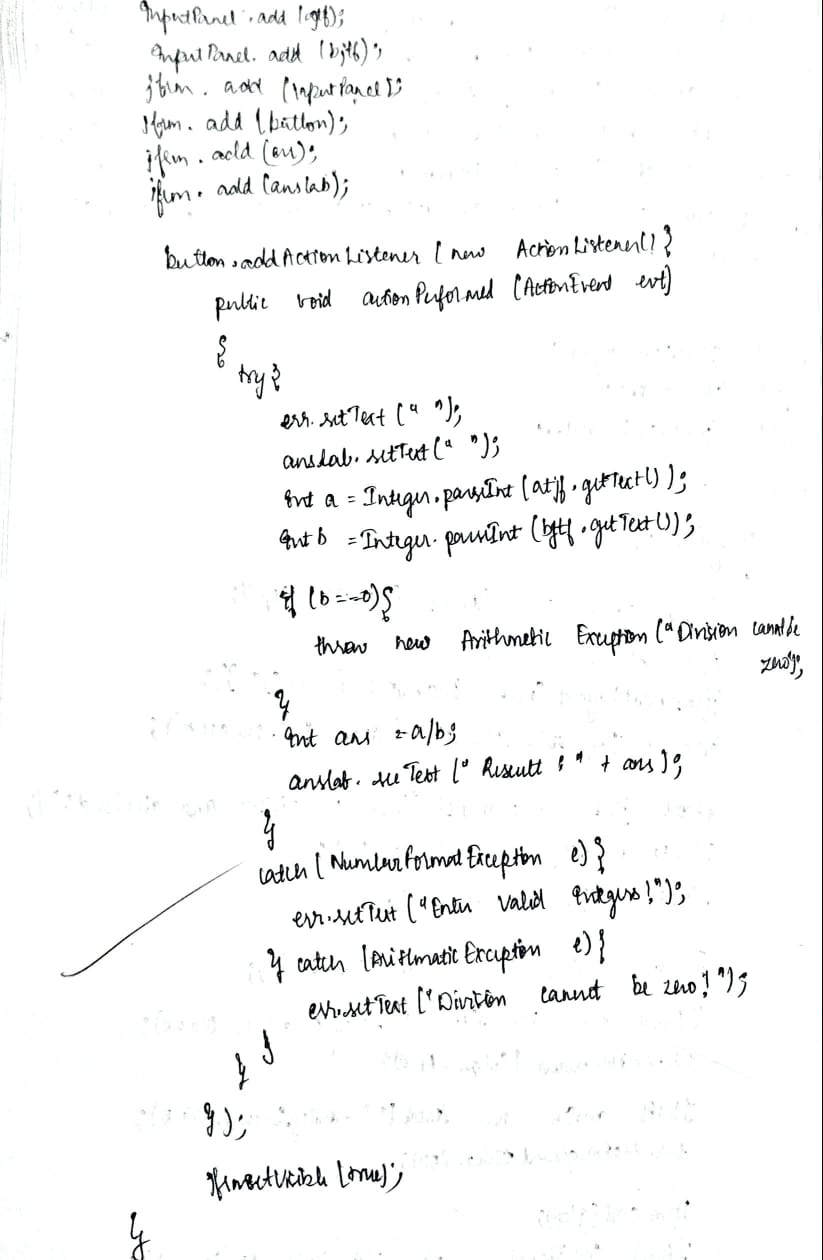 InputPanel.add (ajtf);
InputPanel. add (bjtf);
jfrm. add (InputPanel);
jfrm. add (button);
jfrm. add (err);
jfrm. add (anslab);
button.addActionListener (new ActionListener() {
public void actionPerformed (ActionEvent evt)
{
try {
err. setText (" ");
anslab. setText (" ");
int a = Integer.parseInt (atjf.getText());
int b = Integer.parseInt (bjtf.getText());
if (b==0){
throw new Arithmetic Exception ("Division cannot be
zero");
}
int ans = a/b;
anslab. setText (" Result : " + ans);
}
catch (NumberFormatException e) {
err.setText ("Enter Valid integers!");
} catch (ArithmaticException e) {
err.setText ("Division cannot be zero!");
}
}
});
jfrm.setVisible (true);
}